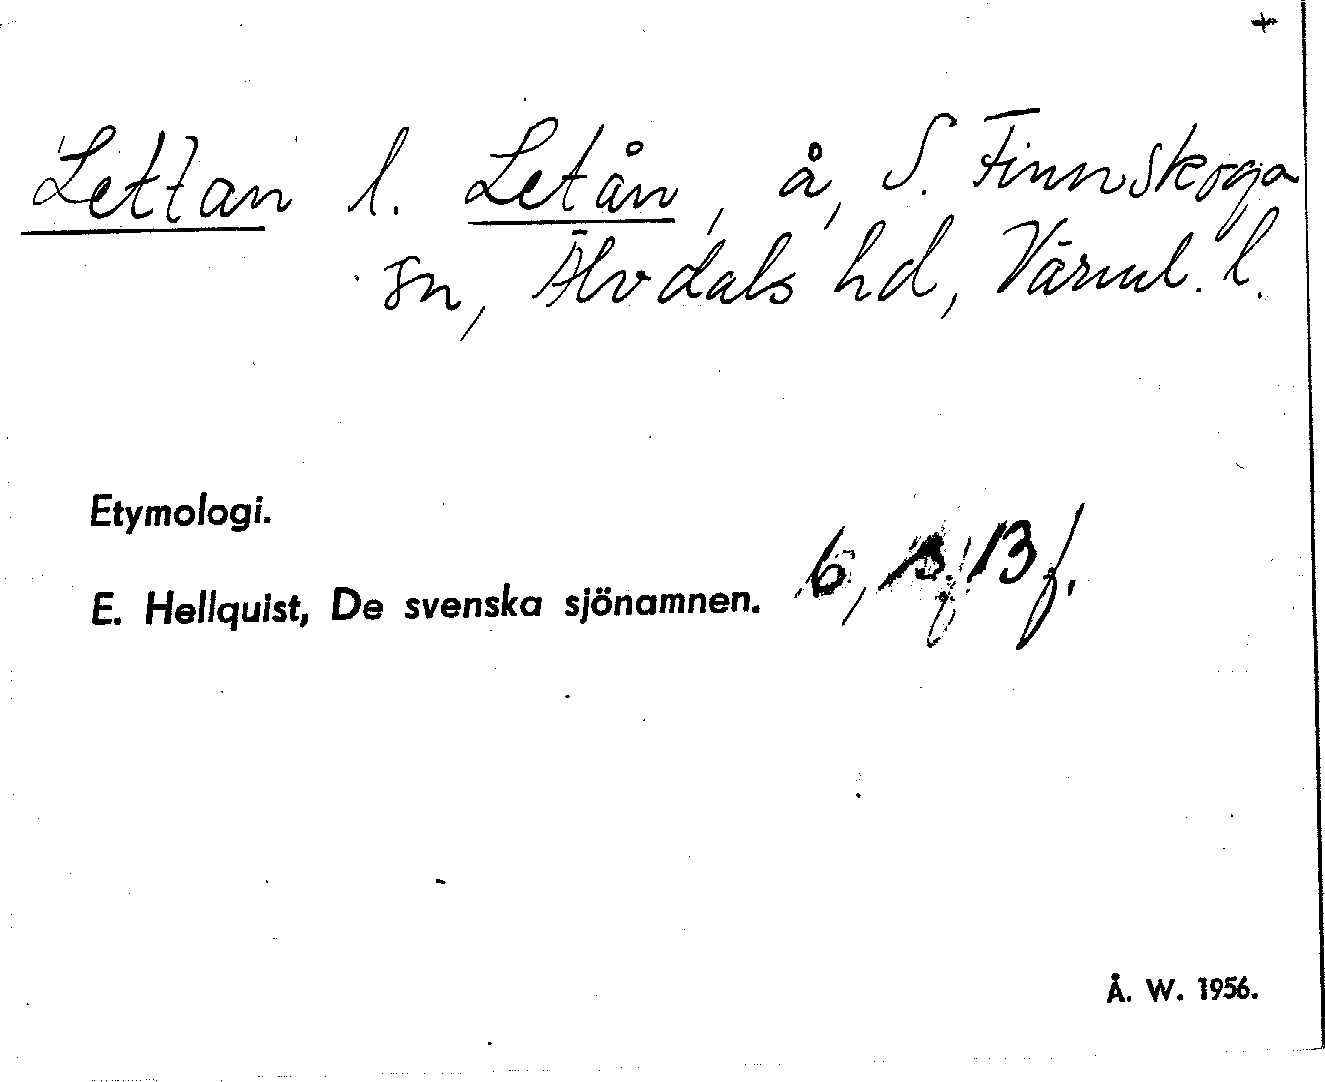 +
Lettan l. Letån, å, S. Finnskoga
sn, Älvdals hd, Värml. l.
Etymologi.
E. Hellquist, De svenska sjönamnen. 6, s. 13 f.
Å. W. 1956.